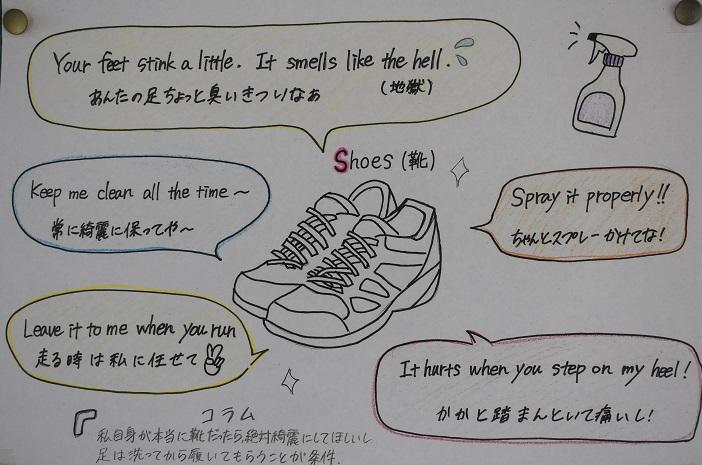 Your feet stink a little. It smells like the hell.
あんたの足ちょっと臭いきついなぁ (地獄)
Shoes (靴)
Keep me clean all the time〜
常に綺麗に保ってや〜
Spray it properly!!
ちゃんとスプレーかけてな!
Leave it to me when you run
走る時は私に任せて
It hurts when you step on my heel!
かかと踏まんといて痛いし!
コラム
私自身が本当に靴だったら絶対綺麗にしてほしいし
足は洗ってから履いてもらうことが条件.